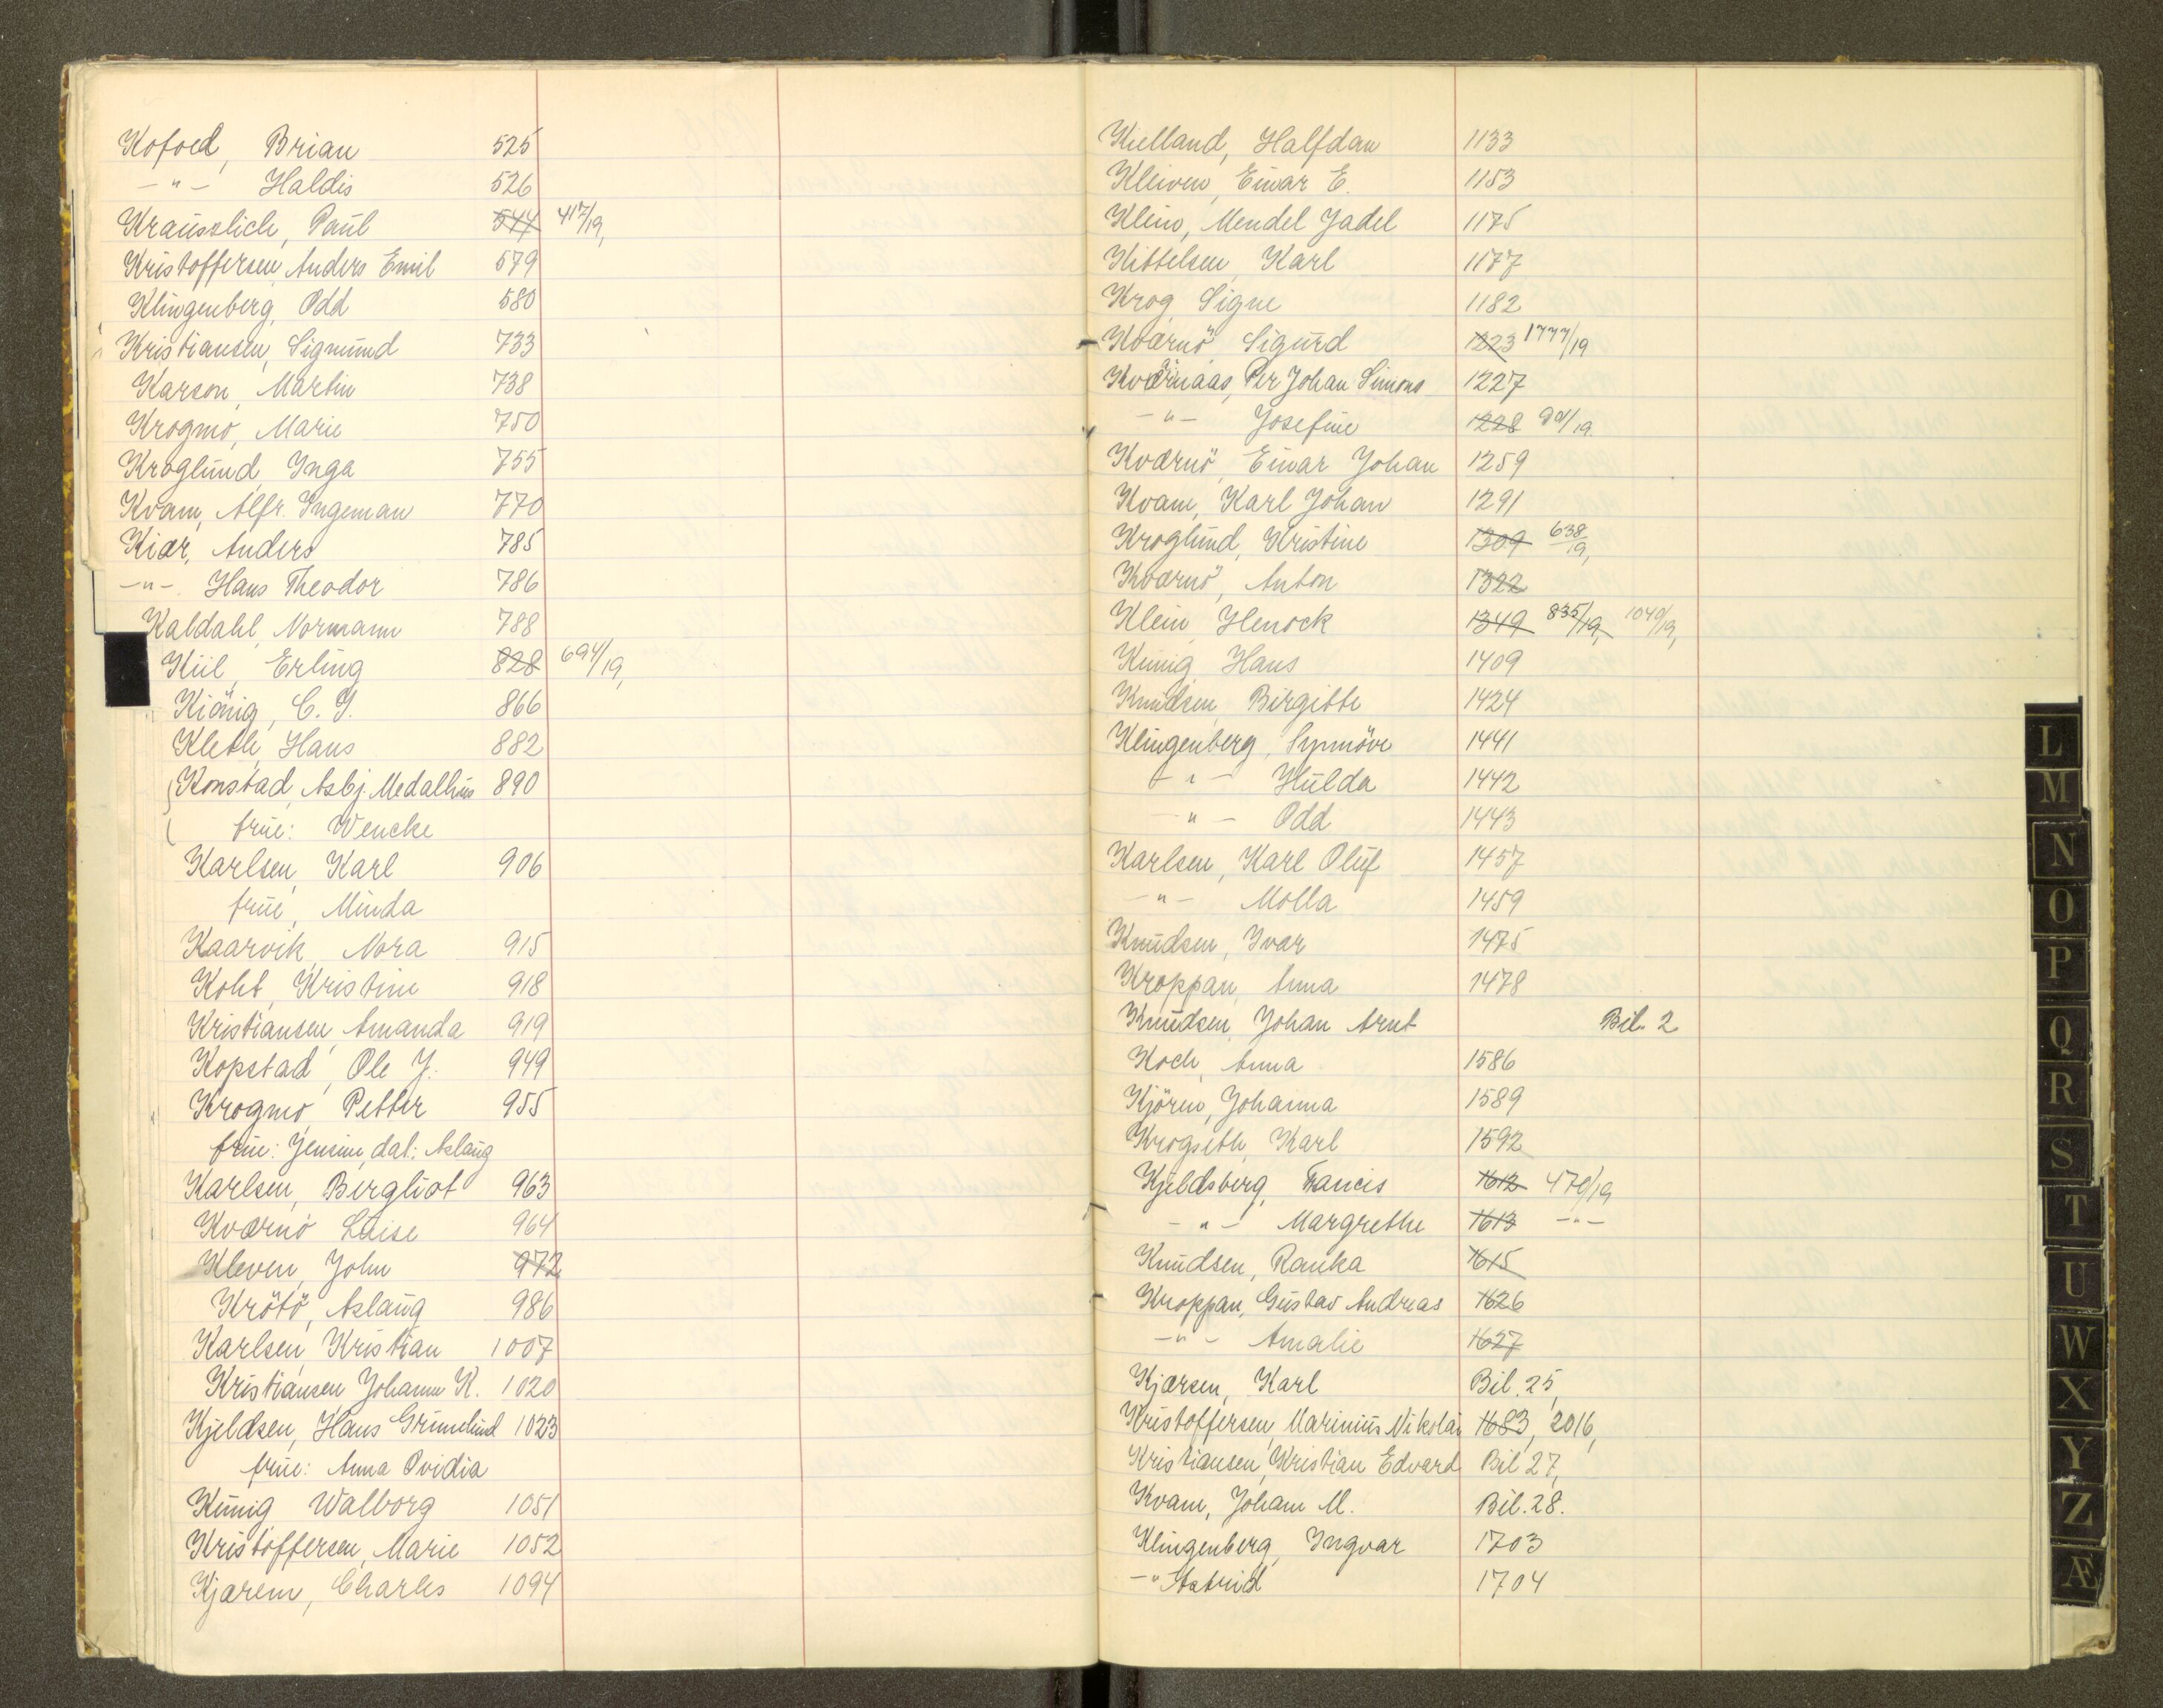 Kofoed, Brian 525
-"- Haldis 526
Krausslich, Paul 544 417/19,
Kristoffersen, Anders Emil 579
Klingenberg, Odd 580
Kristiansen, Sigmund 733
Karson, Martin 738
Krogmo, Marie 750
Kroglund, Inga 755
Kvam, Alfr. Ingeman 770
Kiær, Anders 785
-"- Hans Theodor 786
Kaldahl, Normann 788
Kiil, Erling 828 694/19,
Kiönig, C. J. 866
Kleth, Hans 882
Konstad, Asbj. Medalhus 890
frue: Wencke
Karlsen, Karl 906
frue, Minda
Kaarvik, Nora 915
Koht, Kristine 918
Kristiansen, Amanda 919
Kopstad, Ole J. 949
Krogmo, Petter 955
frue: Jensine, dat: Aslaug
Karlsen, Bergliot 963
Kværnö Luise 964
Kleven, John 972
Krötö, Aslaug 986
Karlsen, Kristian 1007
Kristiansen, Johann K. 1020
Kjeldsen, Hans Grimelund 1023
frue: Anna Ovidia
Künig Walborg 1051
Kristoffersen, Marie 1052
Kjærem, Charles 1094
Kielland, Halfdan 1133
Kleiven, Einar E. 1153
Klein, Mendel Jadel 1175
Kittelsen, Karl 1177
Krog, Signe 1182
Kværnö, Sigurd 1223 1777/19
Kværnaas, Per Johan Simons 1227
-"- Josefine 1228 /19.
Kværnö, Einar Johan 1259
Kvam, Karl Johan 1291
Kroglund, Kristine 1309 638/19,
Kværnö, Anton 1322
Klein, Henock 1349 835/19, 1040/19,
Künig, Hans 1409
Knudsen, Birgitte 1424
Klingenberg, Synnöve 1441
-"- Hulda 1442
-"- Odd 1443
Karlsen, Karl Oluf 1457
-"- Molla 1459
Knudsen, Ivar 1475
Kroppan, Anna 1478
Knudsen, Johan Arnt Bil. 2
Koch, Anna 1586
Kjören, Johanna 1589
Krogseth, Karl 1592
Kjeldsberg, Francis 1612 470/19
-"- Margrethe 1613 -"-
Knudsen, Ranka 1615
Kroppan, Gustav Andreas 1626
-"- Amalie 1627
Kjærsen, Karl Bil. 25,
Kristoffersen, Marinius Nikolai 1683, 2016,
Kristiansen, Kristian Edvard Bil 27,
Kvam, Johan M. Bil. 28.
Klingenberg, Ingvar 1703
-"- Astrid 1704
L
M
N
O
P
Q
R
S
T
U
W
X
Y
Z
Æ